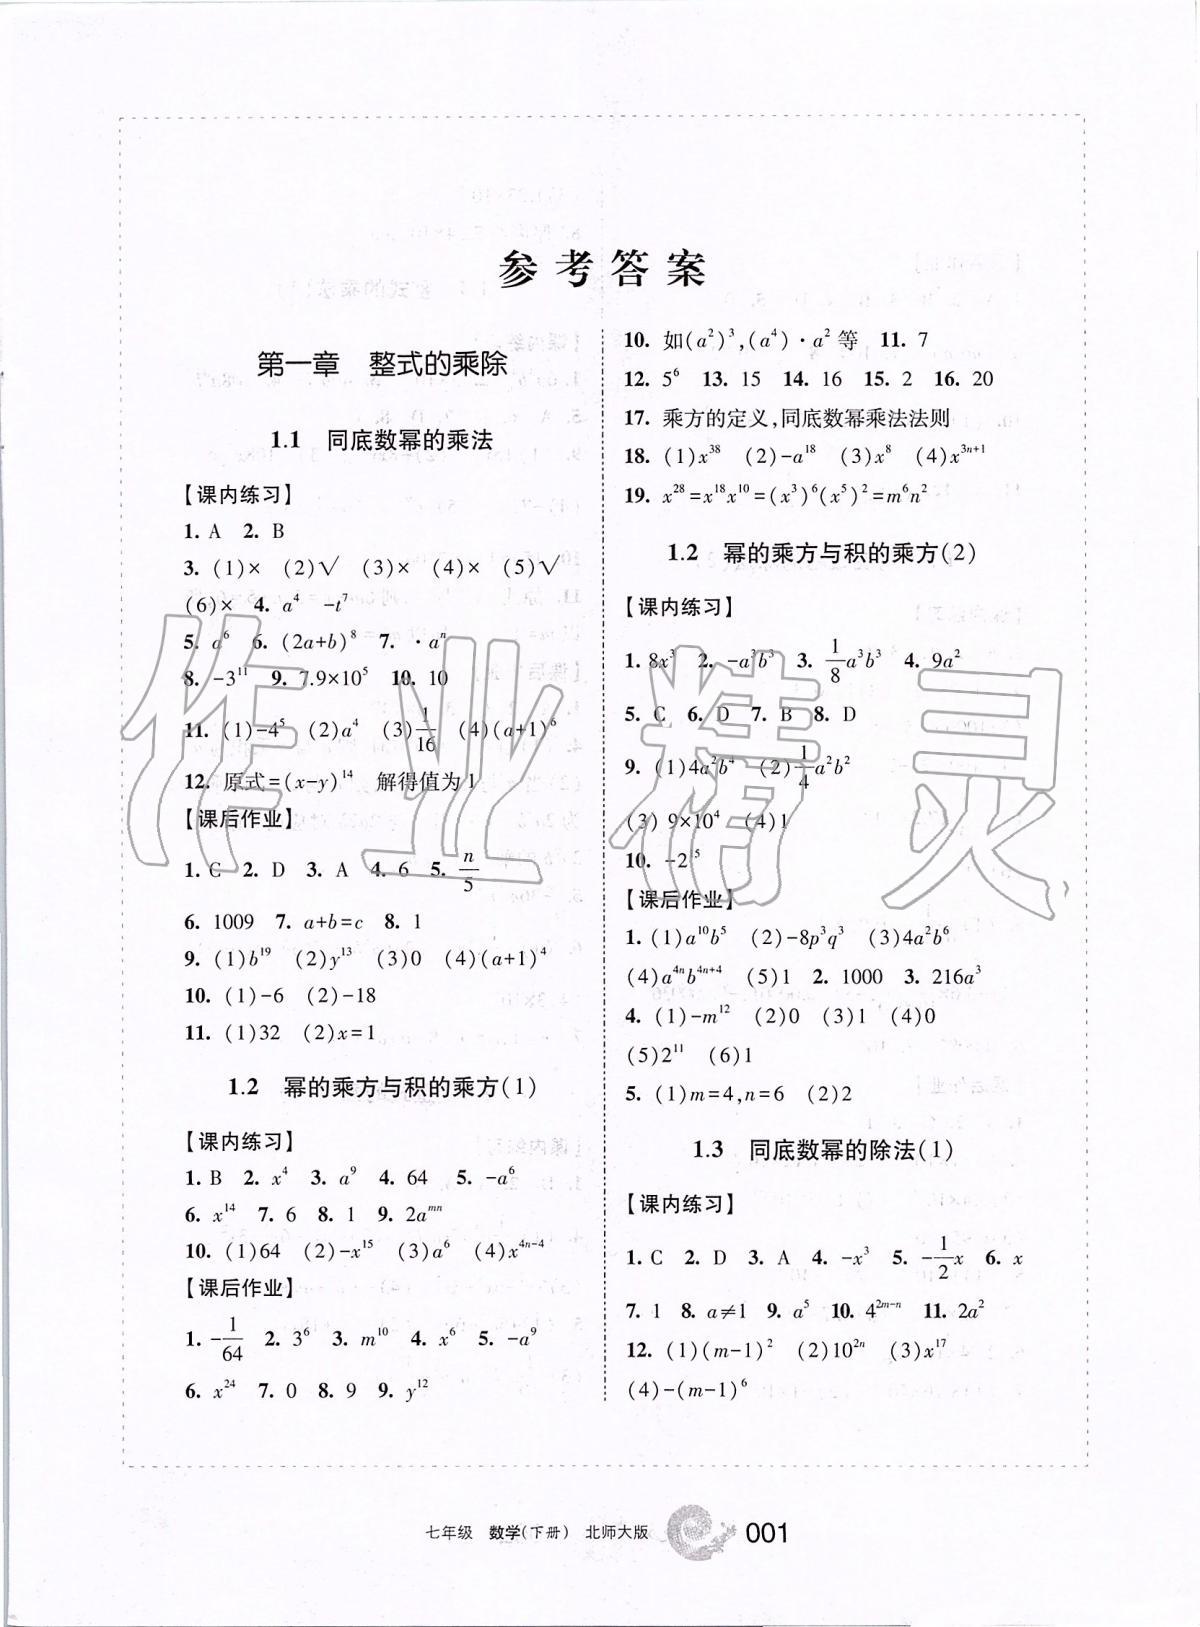 参考答案
第一章 整式的乘除
1.1 同底数幂的乘法
【课内练习】
1. A 2. B
3. (1)× (2)√ (3)× (4)× (5)√
(6)× 4. a⁴ -t⁷
5. a⁶ 6. (2a+b)⁸ 7. ·aⁿ
8. -3¹¹ 9. 7.9×10⁵ 10. 10
11. (1)-4⁵ (2)a⁴ (3)1/16 (4)(a+1)⁶
12. 原式=(x-y)¹⁴ 解得值为1
【课后作业】
1. C 2. D 3. A 4. 6 5. n/5
6. 1009 7. a+b=c 8. 1
9. (1)b¹⁹ (2)y¹³ (3)0 (4)(a+1)⁴
10. (1)-6 (2)-18
11. (1)32 (2)x=1
1.2 幂的乘方与积的乘方(1)
【课内练习】
1. B 2. x⁴ 3. a⁹ 4. 64 5. -a⁶
6. x¹⁴ 7. 6 8. 1 9. 2aᵐⁿ
10. (1)64 (2)-x¹⁵ (3)a⁶ (4)x⁴ⁿ⁻⁴
【课后作业】
1. -1/64 2. 3⁶ 3. m¹⁰ 4. x⁶ 5. -a⁹
6. x²⁴ 7. 0 8. 9 9. y¹²
10. 如(a²)³,(a⁴)·a²等 11. 7
12. 5⁶ 13. 15 14. 16 15. 2 16. 20
17. 乘方的定义,同底数幂乘法法则
18. (1)x³⁸ (2)-a¹⁸ (3)x⁸ (4)x³ⁿ⁺¹
19. x²⁸=x¹⁸x¹⁰=(x³)⁶(x⁵)²=m⁶n²
1.2 幂的乘方与积的乘方(2)
【课内练习】
1. 8x³ 2. -a³b³ 3. 1/8a³b³ 4. 9a²
5. C 6. D 7. B 8. D
9. (1)4a²b⁴ (2)1/4a²b²
(3) 9×10⁴ (4)1
10. -2¹⁵
【课后作业】
1. (1)a¹⁰b⁵ (2)-8p³q³ (3)4a²b⁶
(4)a⁴ⁿb⁴ⁿ⁺⁴ (5)1 2. 1000 3. 216a³
4. (1)-m¹² (2)0 (3)1 (4)0
(5)2¹¹ (6)1
5. (1)m=4,n=6 (2)2
1.3 同底数幂的除法(1)
【课内练习】
1. C 2. D 3. A 4. -x³ 5. -1/2x 6. x
7. 1 8. a≠1 9. a⁵ 10. 4²ᵐ⁻ⁿ 11. 2a²
12. (1)(m-1)² (2)10²ⁿ (3)x¹⁷
(4)-(m-1)⁶
作业精灵
七年级 数学(下册) 北师大版 001